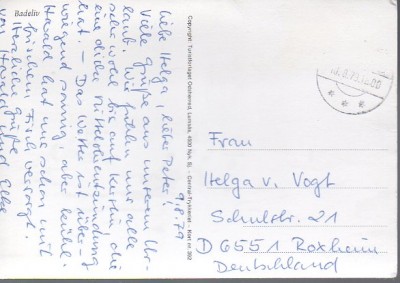 Badeliv
9.8.79
Liebe Helga, lieber Peter!
Viele Grüße aus unserem Ur-
laub. Wir fühlen uns alle
sehr wohl bis auf Kerstin, die
eine dicke Mittelohrentzündung
hat. – Das Wetter ist über-
wiegend sonnig, aber kühl.
Harald hat uns schon mit
frischem Fisch versorgt.
Herzliche Grüße
von Harald und Elke
Copyright: Turistforlaget Odsherred, Lumsås, 4500 Nyk. Sj. - Central-Trykkeriet - Kort nr. 300
Frau
Helga v. Vogt
Schulstr. 21
D 6551 Roxheim
Deutschland